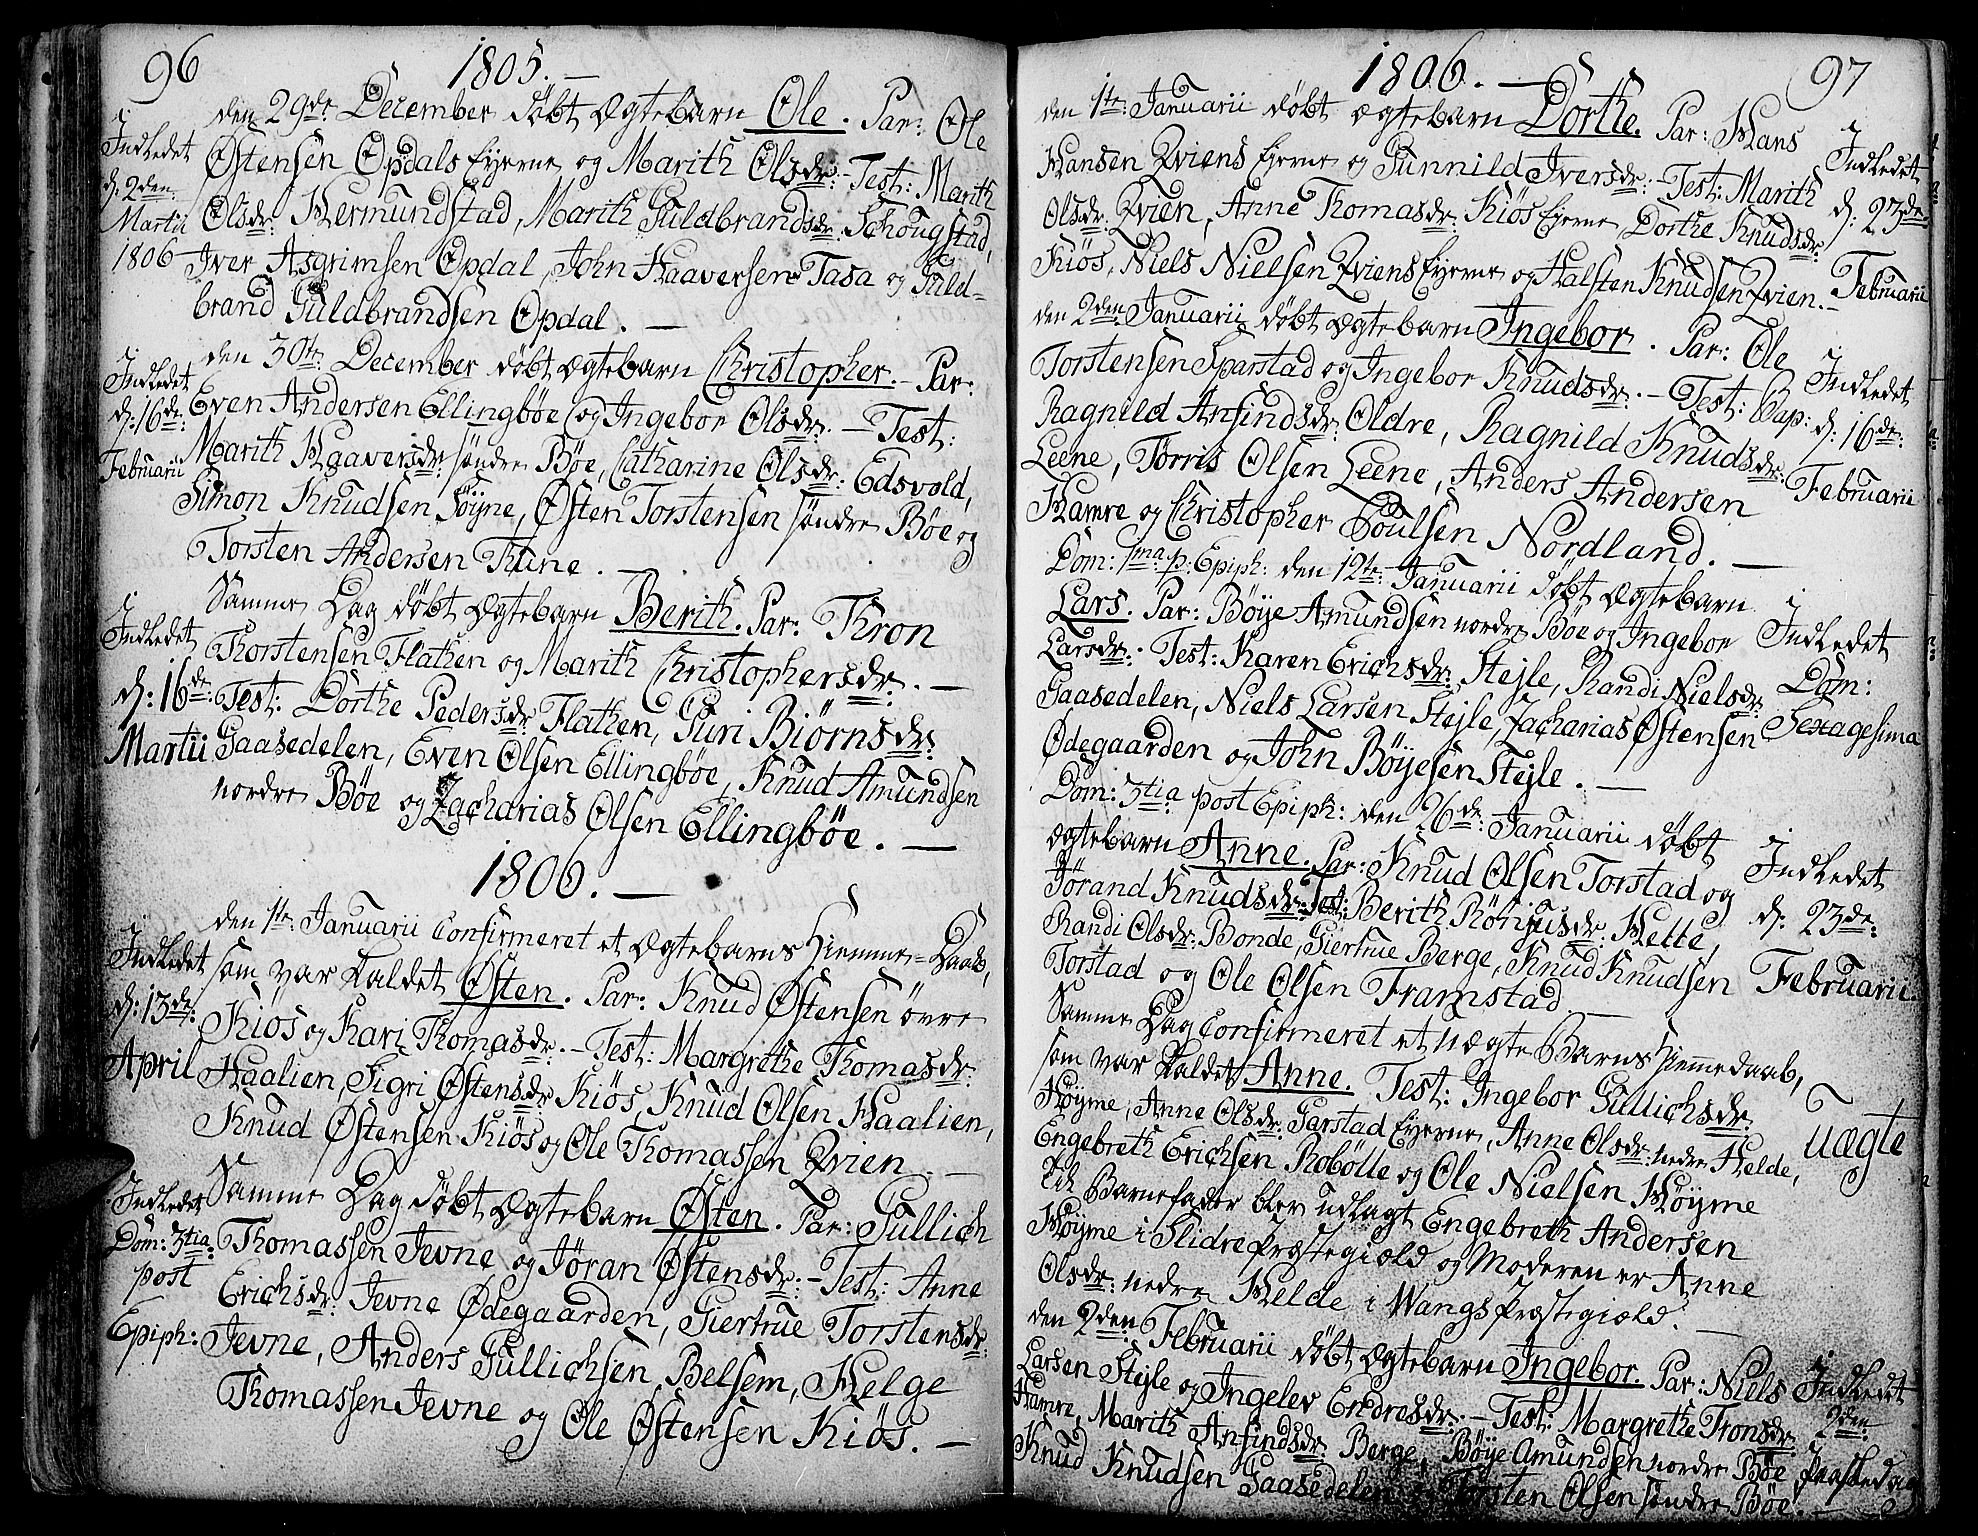 96
1805. —
den 29de December døbt Ægtebarn Ole. Par: Ole
Østensen Opdals Eyerne og Marith Olsdr: - Test: Marith
Olsdr: Hermundstad, Marith Guldbrandsdr: Schougstad,
Iver Asgrimsen Opdal, John Haaversen Tasa og Guld-
brand Guldbrandsen Opdal. —
Indledet
d: 2den
Martii
1806
den 30te December døbt Ægtebarn Christopher. - Par:
Even Andersen Ellingbøe og Ingebor Olsdr: - Test:
Marith Haaversdr: søndre Bøe, Catharine Olsdr: Edsvold,
Simon Knudsen Føyne, Østen Torstensen søndre Bøe og
Torsten Andersen Thune. —
Indledet
d: 16de
Februarii
Samme Dag døbt Ægtebarn Berith. Par: Thron
Thorstensen Flathen og Marith Christophersdr: . —
Test: Dorthe Pedersdr: Flathen, Guri Biørnsdr:
Gaasedelen, Even Olsen Ellingbøe, Knud Amundsen
nordre Bøe og Zacharias Olsen Ellingbøe. —
Indledet
d: 16de
Martii
1806. —
den 1te Januarii Confirmeret et Ægtebarns Hiemme-Daab,
som var kaldet Østen. Par: Knud Østensen øvre
Kiøs og Kari Thomasdr: - Test: Margrethe Thomasdr:
Haalien, Sigri Østensdr: Kiøs, Knud Olsen Haalien,
Knud Østensen Kiøs og Ole Thomassen Qvien. —
Indledet
d: 13de
April
Samme Dag døbt Ægtebarn Østen. Par: Gullich
Thomassen Jevne og Jøran Østensdr: - Test: Anne
Erichsdr: Jevne Ødegaarden, Giertrue Torstensdr:
Jevne, Anders Gullichsen Belsem, Helge
Thomassen Jevne og Ole Østensen Kiøs. —
Indledet
Dom: 3tia
post
Epiph:
1806. —
97
den 1te Januarii døbt Ægtebarn Dorthe. Par: Hans
Hansen Qviens Eyerne og Gunnild Iversdr: - Test: Marith
Olsdr: Qvien, Anne Thomasdr: Kiøs Eyerne, Dorthe Knudsdr:
Kiøs, Niels Nielsen Qviens Eyerne og Halsten Knudsen Qvien. -
Indledet
d: 23de
Februarii
den 2den Januarii døbt Ægtebarn Ingebor. Par: Ole
Torstensen Sparstad og Ingebor Knudsdr: - Test: Bap:
Ragnild Ansindsdr: Oldre, Ragnild Knudsdr:
Leene, Torris Olsen Leene, Anders Andersen
Hamre og Christopher Poulsen Nordland. —
Indledet
d: 16de
Februarii
Dom: 1ma p: Epiph: den 12te Januarii døbt Ægtebarn
Lars. Par: Bøye Amundsen nordre Bøe og Ingebor
Larsdr: . Test: Karen Erichsdr: Stejle, Randi Nielsdr:
Gaasedelen, Niels Larsen Stejle, Zacharias Østensen
Ødegaarden og John Bøyesen Stejle. —
Indledet
Dom:
Sexagesima
Dom: 3tia post Epiph: den 26de Januarii døbt
Ægtebarn Anne. Par: Knud Olsen Torstad og
Jørand Knudsdr: Test: Berith Rønjusdr: Hette,
Randi Olsdr: Bonde, Giertrue Berge, Knud Knudsen
Torstad og Ole Olsen Framstad —
Indledet
d: 23de
Februarii
Samme Dag Confirmeret et uægte Barns Hiemedaab,
som var kaldet Anne. Test: Ingebor Gullichsdr:
Høyme, Anne Olsdr: Garstad Eyerne, Anne Olsdr: nedre Helde,
Engebreth Erichsen Robølle og Ole Nielsen Høyme
Til Barnefader blev udlagt Engebreth Andersen
Høyme i Slidre Præstegiæld og Moderen er Anne
Olsdr: nedre Helde i Wangs Præstegiæld. —
Uægte
den 2den Februarii døbt Ægtebarn Ingebor. Par: Niels
Larsen Stejle og Ingelev Endresdr: - Test: Margrethe Tronsdr:
Hamre, Marith Ansindsdr: Berge, Bøye Amundsen nordre Bøe
Knud Knudsen Gaasedelen og Torsten Olsen søndre Bøe. —
Indledet
2den
Paaskedag